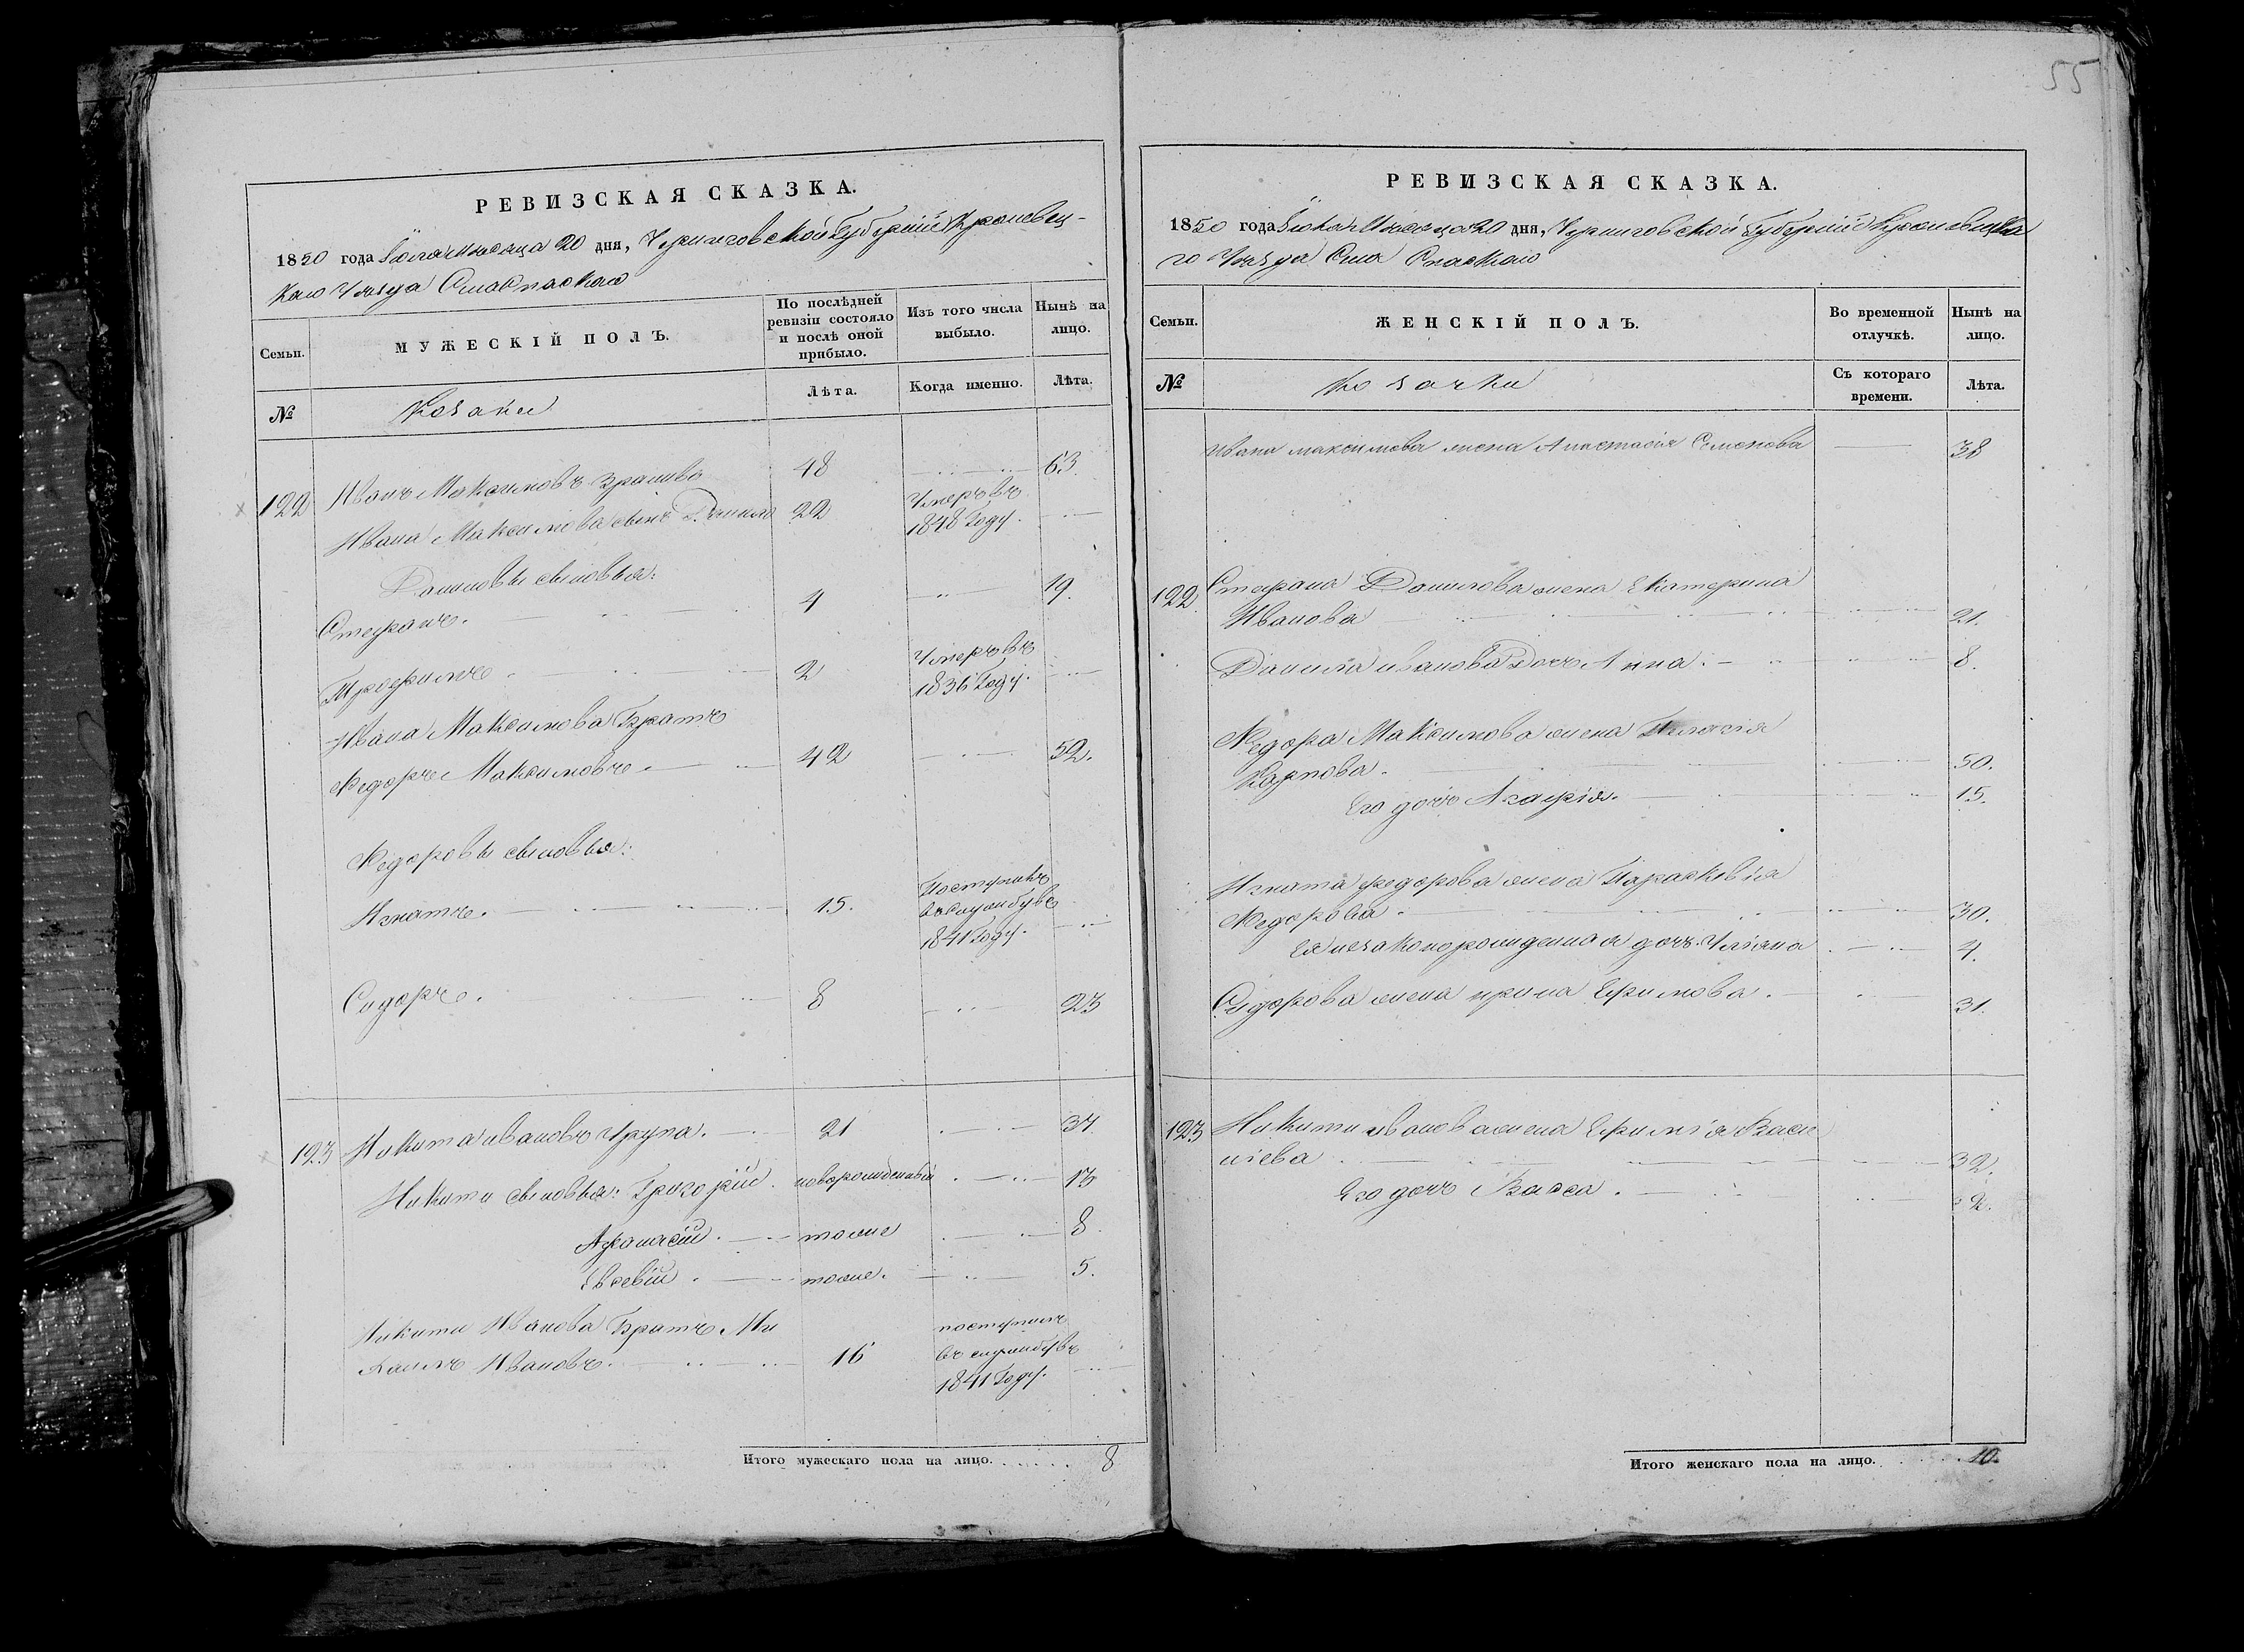 55
РЕВИЗСКАЯ СКАЗКА.
1850 года Іюля Мѣсяца 20 дня, Черниговской Губерніи Кролевец-
каго Уѣзда Села Спаскаго
Семьи.
МУЖЕСКІЙ ПОЛЪ.
По послѣдней
ревизіи состояло
и послѣ оной
прибыло.
Изъ того числа
выбыло.
Нынѣ на
лицо.
№
Козаки
Лѣта.
Когда именно.
Лѣта.
122 Иванъ Максимовъ 48 63.
Ивана Максимова сынъ Данило 22 Умеръ въ
1848 Году.
Даниловы сыновья:
Стефанъ. 4 19.
Трофимъ 2 Умеръ въ
1836 Году.
Ивана Максимова Братъ
Федоръ Максимовъ 42 52.
Федоровы сыновья:
Игнатъ. 15. Поступилъ
въ службу въ
1841 Году.
Сидоръ. 8 23
123 Никита Ивановъ 21 37
Никиты сыновья: Григорій новорожденный 13
Афанасій тоже 8.
Евсевій тоже. 5.
Никиты Иванова Братъ Ми
хаилъ Ивановъ. 16 поступилъ
въ службу въ
1841 Году.
Итого мужескаго пола на лицо. 8
РЕВИЗСКАЯ СКАЗКА.
1850 года Іюля Мѣсяца 20 дня, Черниговской Губерніи Кролевецка
го Уѣзда Села Спаскаго
Семьи.
ЖЕНСКІЙ ПОЛЪ.
Во временной
отлучкѣ.
Нынѣ на
лицо.
№
Козачки
Съ котораго
времени.
Лѣта.
Ивана максимова жена Анастасія Семенова 38
122. Стефана Данилова жена Екатерина
Иванова 21.
Данила иванова Дочь Анна. 8.
Федора Максимова жена Пелагія
Карпова. 50.
Его дочь Агафія. 15.
Игната федорова жена Параскевія
Федорова. 30.
Ея незаконорожденная дочь Уліяна 4.
Сидорова жена ирина Ефимова. 31.
123 Никиты иванова жена Ефимія Васи
ліева 32.
Его дочь Васса. 2.
Итого женскаго пола на лицо. 10.